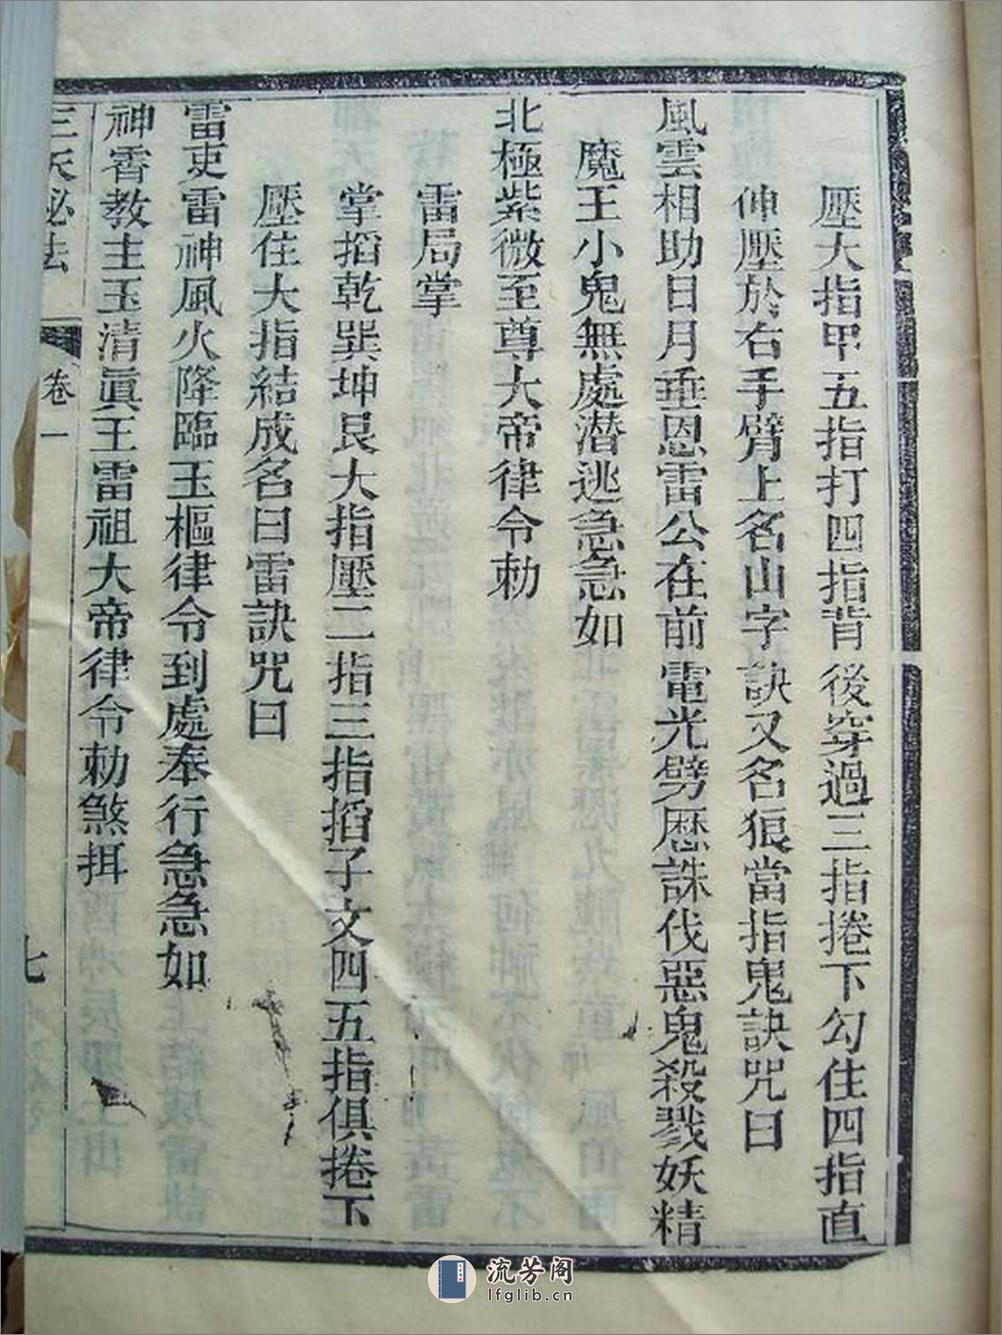 壓大指甲五指打四指背後穿過三指捲下勾住四指直
伸壓於右手臂上名山字訣又名狼當指鬼訣咒曰
風雲相助日月垂恩雷公在前電光劈歴誅伐惡鬼殺戮妖精
魔王小鬼無處潜逃急急如
北極紫微至尊大帝律令勅
雷局掌
掌搯乾巽坤艮大指壓二指三指搯子文四五指俱捲下
壓住大指結成名曰雷訣咒曰
雷吏雷神風火降臨玉樞律令到處奉行急急如
神霄教主玉清眞王雷祖大帝律令勅煞挕
三天秘法
卷一
七
流芳阁
lfglib.cn